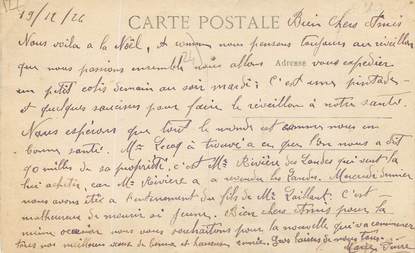 19/12/26 CARTE POSTALE Bien chers Amis
Nous voila a la Nöel, et comme nous pensons toujours au réveillon
que nous passions ensemble nous allons Adresse vous expedier
un petit colis demain au soir mardi: C'est une pintade
et quelques saucisses pour faire le réveillon à notre santé.
Nous espérons que tout le monde est comme nous en
bonne santé. Mr Lecoq a trouvé a ce que l'on nous a dit
90 milles de sa propriété, c'est Mr Rivière des Landes qui veut la
lui acheter, car Mr Rivière a revendu les Landes. Mercredi dernier
nous avons été a l'enterrement du fils de Mr Gaillard. C'est
malheureux de mourir si jeune. Bien chers Amis pour la
même occasion nous vous souhaitons pour la nouvelle qui va commencer
nos meilleurs vœux de bonne et heureuse année. Gros baisers de nous tous.
Marie